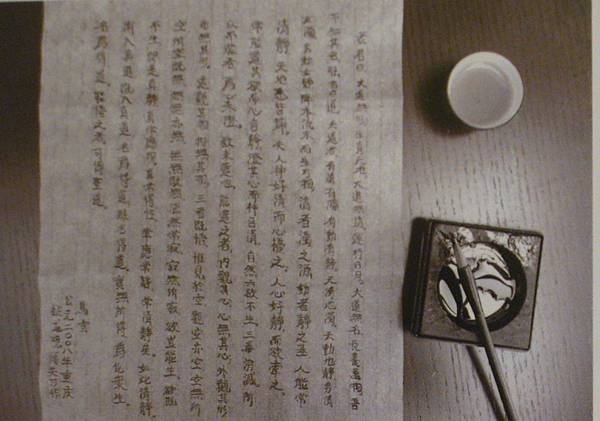 老君曰大道無形生育天地大道無情運行日月大道無名長養萬物吾
不知其名強名曰道夫道者有清有濁有動有靜天清地濁天動地靜男清
女濁男動女靜降本流末而生萬物清者濁之源動者靜之基人能常
清靜天地悉皆歸夫人神好清而心擾之人心好靜而欲牽之
常能遣其欲而心自靜澄其心而神自清自然六欲不生三毒消滅所
以不能者為心未澄欲未遣也能遣之者內觀其心心無其心外觀其形
形無其形遠觀其物物無其物三者既悟惟見於空觀空亦空空無所
空所空既無無無亦無無無既無湛然常寂寂無所寂欲豈能生欲既
不生即是真靜真常應物真常得性常應常靜常清靜矣如此清靜
漸入真道既入真道名為得道雖名得道實無所得為化眾生
名為得道能悟之者可傳聖道
公元二〇〇八年重慶